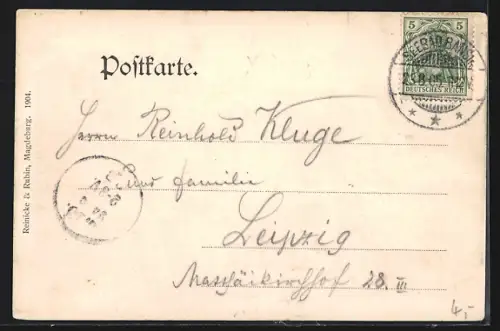 5
DEUTSCHES REICH
SEEBAD
Postkarte.
Herrn Reinhold Kluge
und familie
Leipzig
Matthäikirchhof 28. III
Reinicke & Rubin, Magdeburg. 1904.
4,-